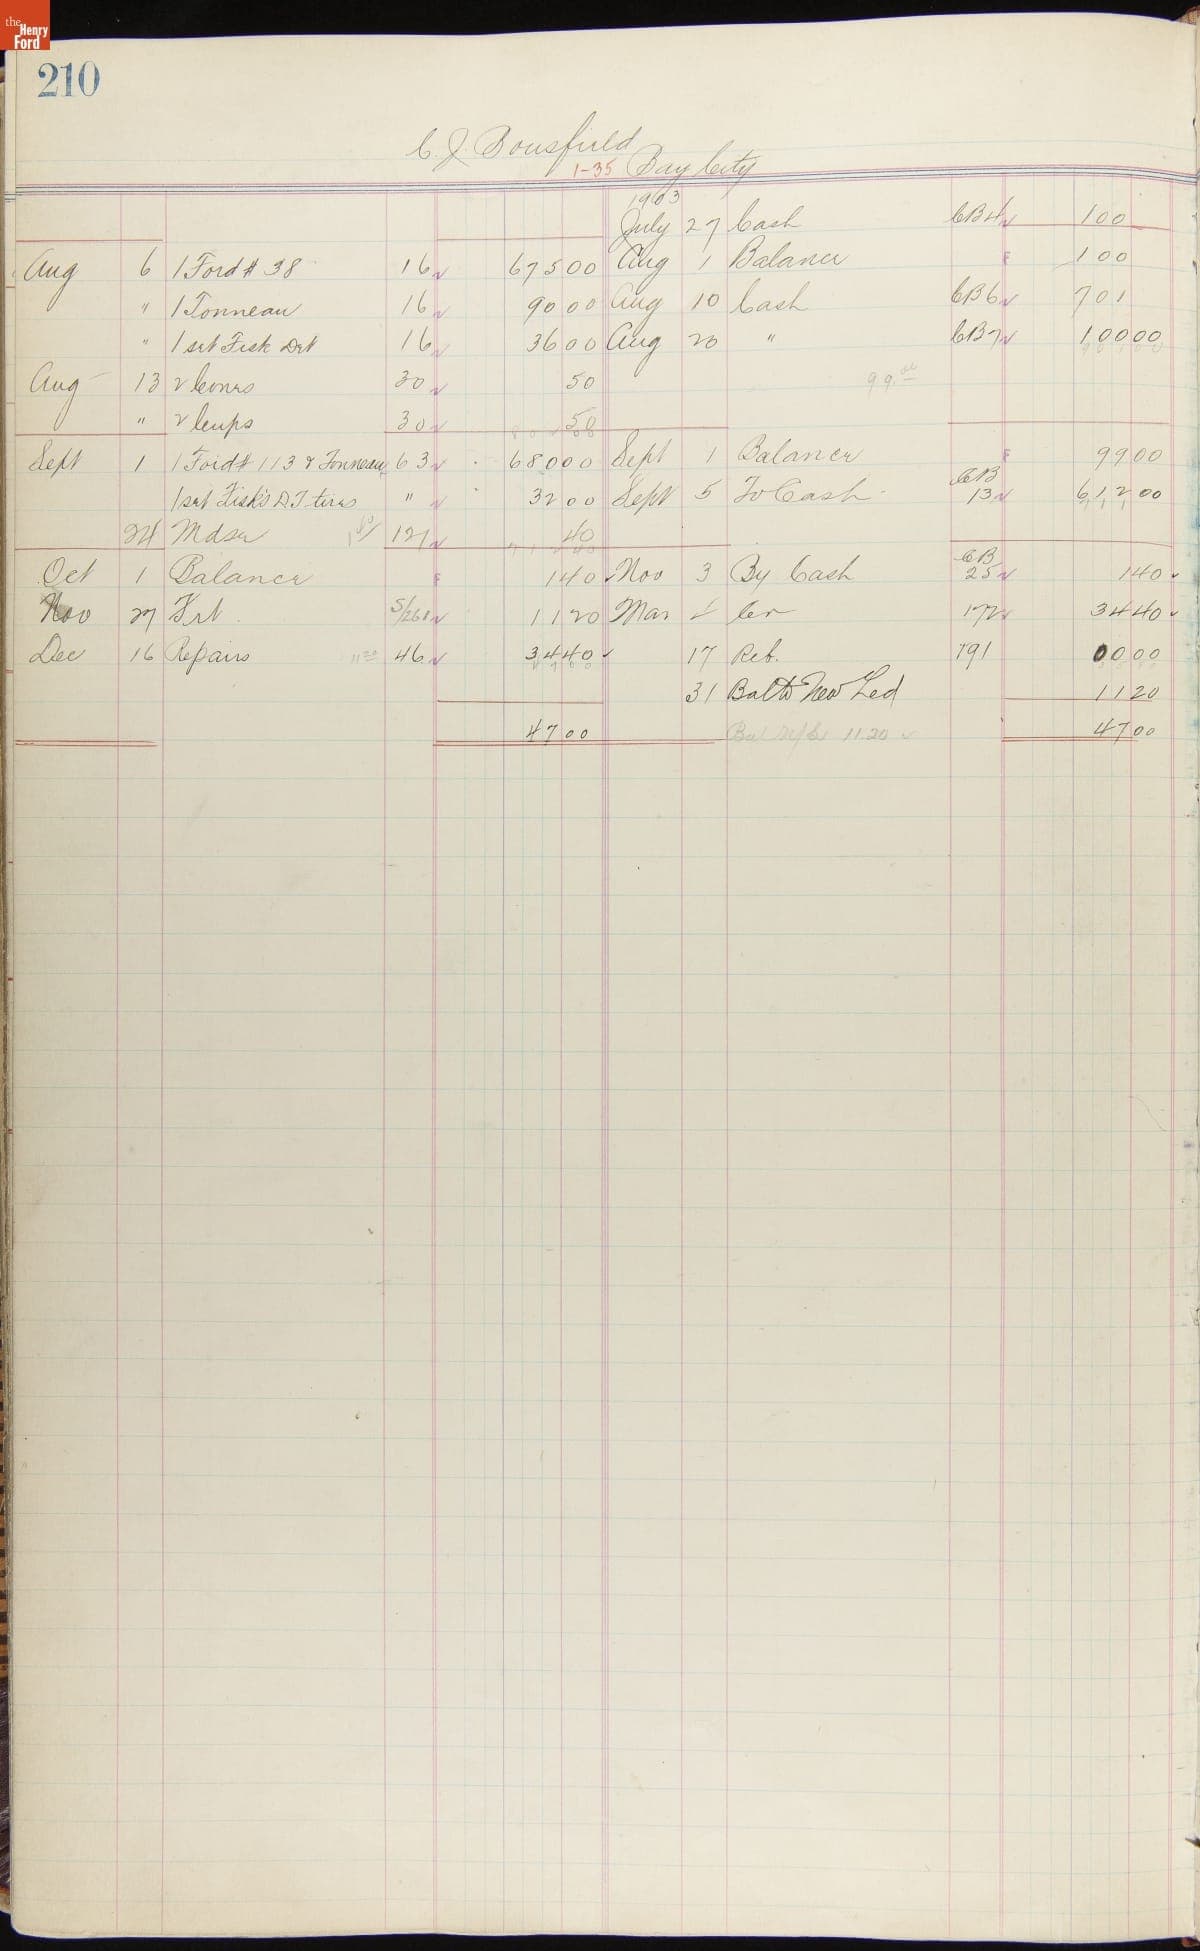 the
Henry
Ford
210
C J Bousfield
1-35 Bay City
1903
July 27 Cash CB4 100
Aug 6 1 Ford # 38 16 67500 Aug 1 Balance F 100
" 1 Tonneau 16 9000 Aug 10 Cash CB6 701
" 1 set Fisk Det 16 3600 Aug 20 " CB7 10000
Aug 13 2 Cones 30 50 99.00
" 2 Cups 30 50
Sept 1 1 Ford # 113 & Tonneau 63 68000 Sept 1 Balance F 9900
1 set Fisk's D.T tires " 3200 Sept 5 To Cash CB 13 61200
24 Mdse 121 40
Oct 1 Balance F 140 Nov 3 By Cash CB 25 140
Nov 27 Frt S/268 1120 Mar 1 Cr 172 3440
Dec 16 Repairs 46 3440 17 Reb. 191 0000
31 Bal to New Led 1120
4700 1120 4700